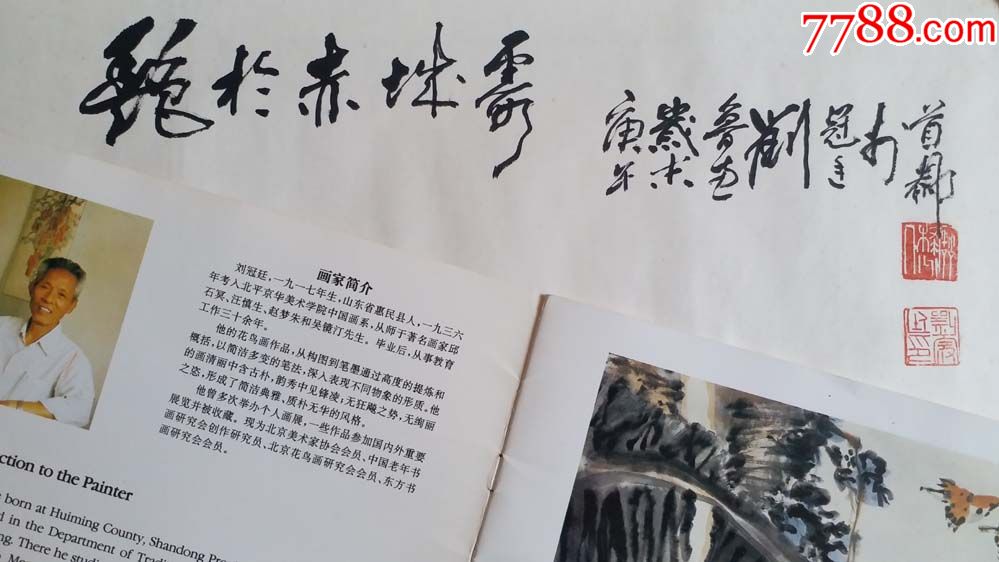 7788.com
於赤城霞
庚午
嵗末
鲁惠
劉
冠廷
於
首都
画家简介
刘冠廷，一九一七年生，山东省惠民县人，一九三六
年考入北平京华美术学院中国画系，从师于著名画家邱
石冥、汪慎生、赵梦朱和吴镜汀先生。毕业后，从事教育
工作三十余年。
他的花鸟画作品，从构图到笔墨通过高度的提炼和
概括，以简洁多变的笔法，深入表现不同物象的形质。他
的画清丽中含古朴，韵秀中见锋凌，无狂飚之势，无绚丽
之姿，形成了简洁典雅，质朴无华的风格。
他曾多次举办个人画展，一些作品参加国内外重要
展览并被收藏。现为北京美术家协会会员、中国老年书
画研究会创作研究员、北京花鸟画研究会会员、东方书
画研究会会员。
ction to the Painter
born at Huiming County, Shandong Pro
d in the Department of Tradi
ng. There he studi